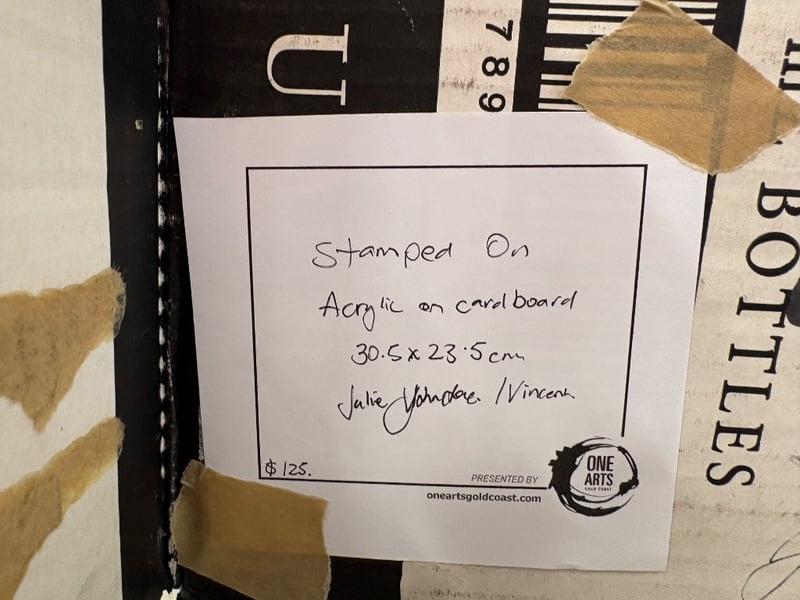 U
789
BOTTLES
Stamped On
Acrylic on cardboard
30.5 x 23.5cm
Julie
$125.
PRESENTED BY
oneartsgoldcoast.com
ONE
ARTS
GOLD COAST